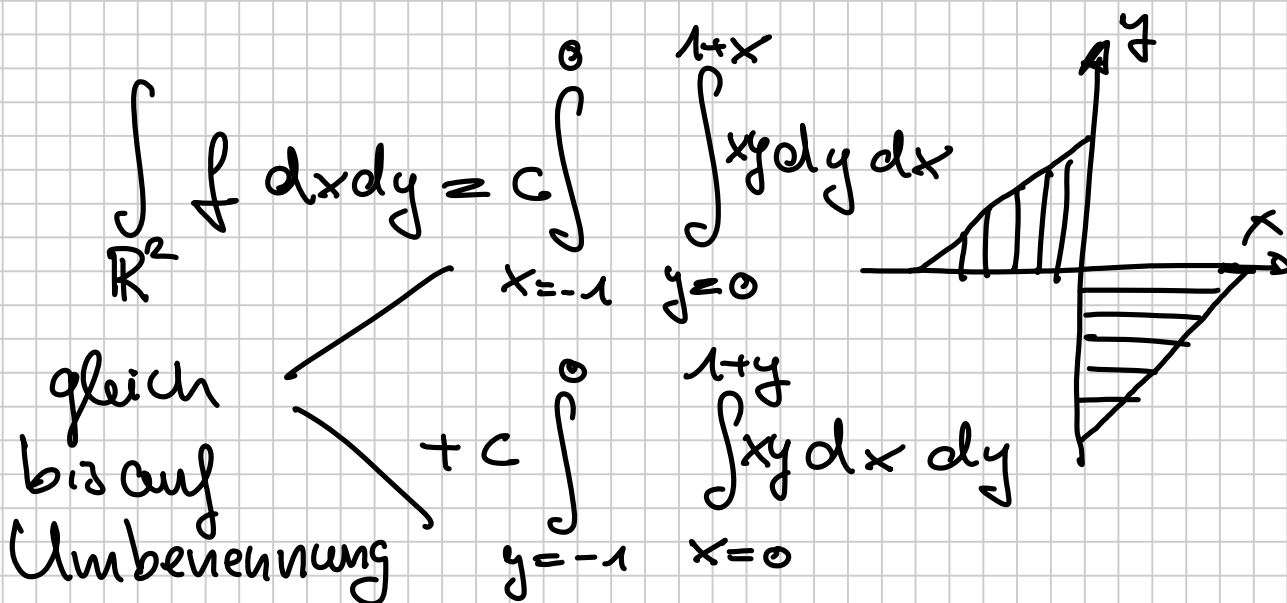 ∫_{ℝ²} f dxdy = c ∫_{x=-1}^{0} ∫_{y=0}^{1+x} xy dy dx
gleich bis auf Umbenennung
+ c ∫_{y=-1}^{0} ∫_{x=0}^{1+y} xy dx dy
y
x